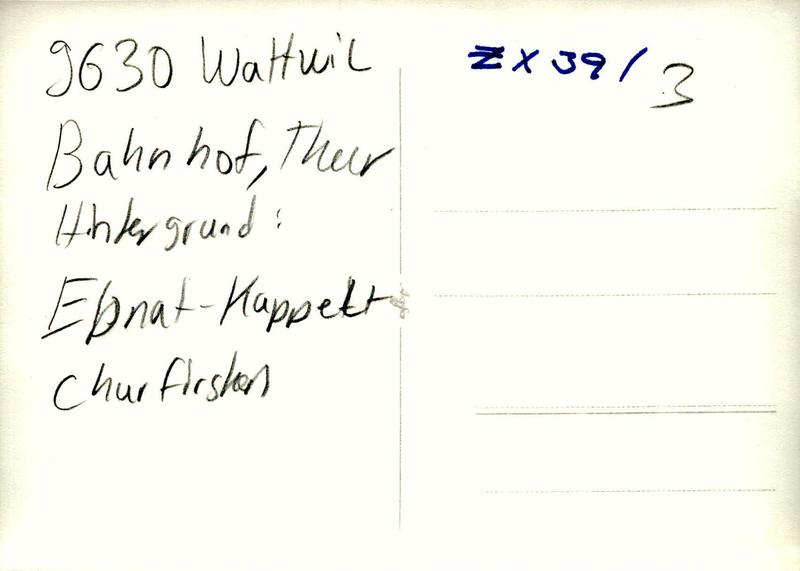 9630 Wattwil
Bahnhof, Thur
Hintergrund:
Ebnat-Kappel +
Churfirsten
ZX 39/3